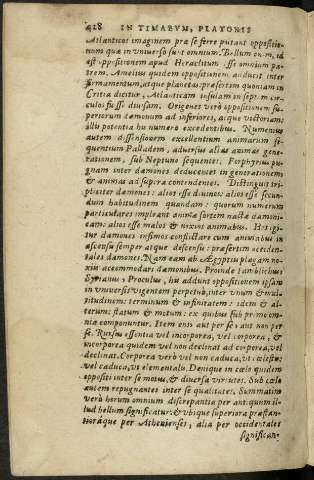 428 IN TIMAEVM, PLATONIS
Atlanticos imaginem præ se ferre putant oppositio-
num quæ in vniuerso sunt omnium. Bellum enim, id
est oppositionem apud Heraclitum esse omnium pa-
trem. Amelius quidem oppositionem adducit inter
firmamentum, atque planetas: præsertim quoniam in
Critia dicitur, Atlanticam insulam in septem cir-
culos fuisse diuisam. Origenes verò oppositionem su-
periorum dæmonum ad inferiores, atque victoriam:
illis potentia his numero excedentibus. Numenius
autem dissensionem excellentium animarum se-
quentium Palladem, aduersus alias animas gene-
rationem, sub Neptuno sequentes. Porphyrius pu-
gnam inter dæmones deducentes in generationem
& animas ad supera contendentes. Distinguit tri-
pliciter dæmones: alios esse diuinos: alios esse secun-
dum habitudinem quandam: quorum numerum
particulares impleant animæ sortem nactæ dæmoni-
cam: alios esse malos & nixios animabus. Hos igi-
tur dæmones infimos conflictare cum animabus in
ascensu semper atque descensu: præsertim occiden-
tales dæmones. Nam eam ab Ægyptiis plagam no-
xiis accommodari dæmonibus. Proinde Iamblichus
Syrianus & Proculus, his addunt oppositionem ipsam
in vniuersis vigentem perpetuò, inter vnum & mul-
titudinem: terminum & infinitatem: idem & al-
terum: statum & motum: ex quibus sub primo om-
nia componuntur. Item ens aut per se aut non per
se. Rursus essentia vel incorporea, vel corporea, &
incorporea quidem vel non declinat ad corporea, vel
declinat. Corporea verò vel non caduca, vt cœlestia:
vel caduca, vt elementalia. Denique in cœlo quidem
oppositi inter se motus, & diuersæ virtutes. Sub cœlo
autem repugnantes inter se qualitates. Summatim
verò horum omnium discrepantia per antiquum il-
lud bellum significatur: & vbique superiora præstan-
tioráque per Athenienses, alia per occidentales
significan-